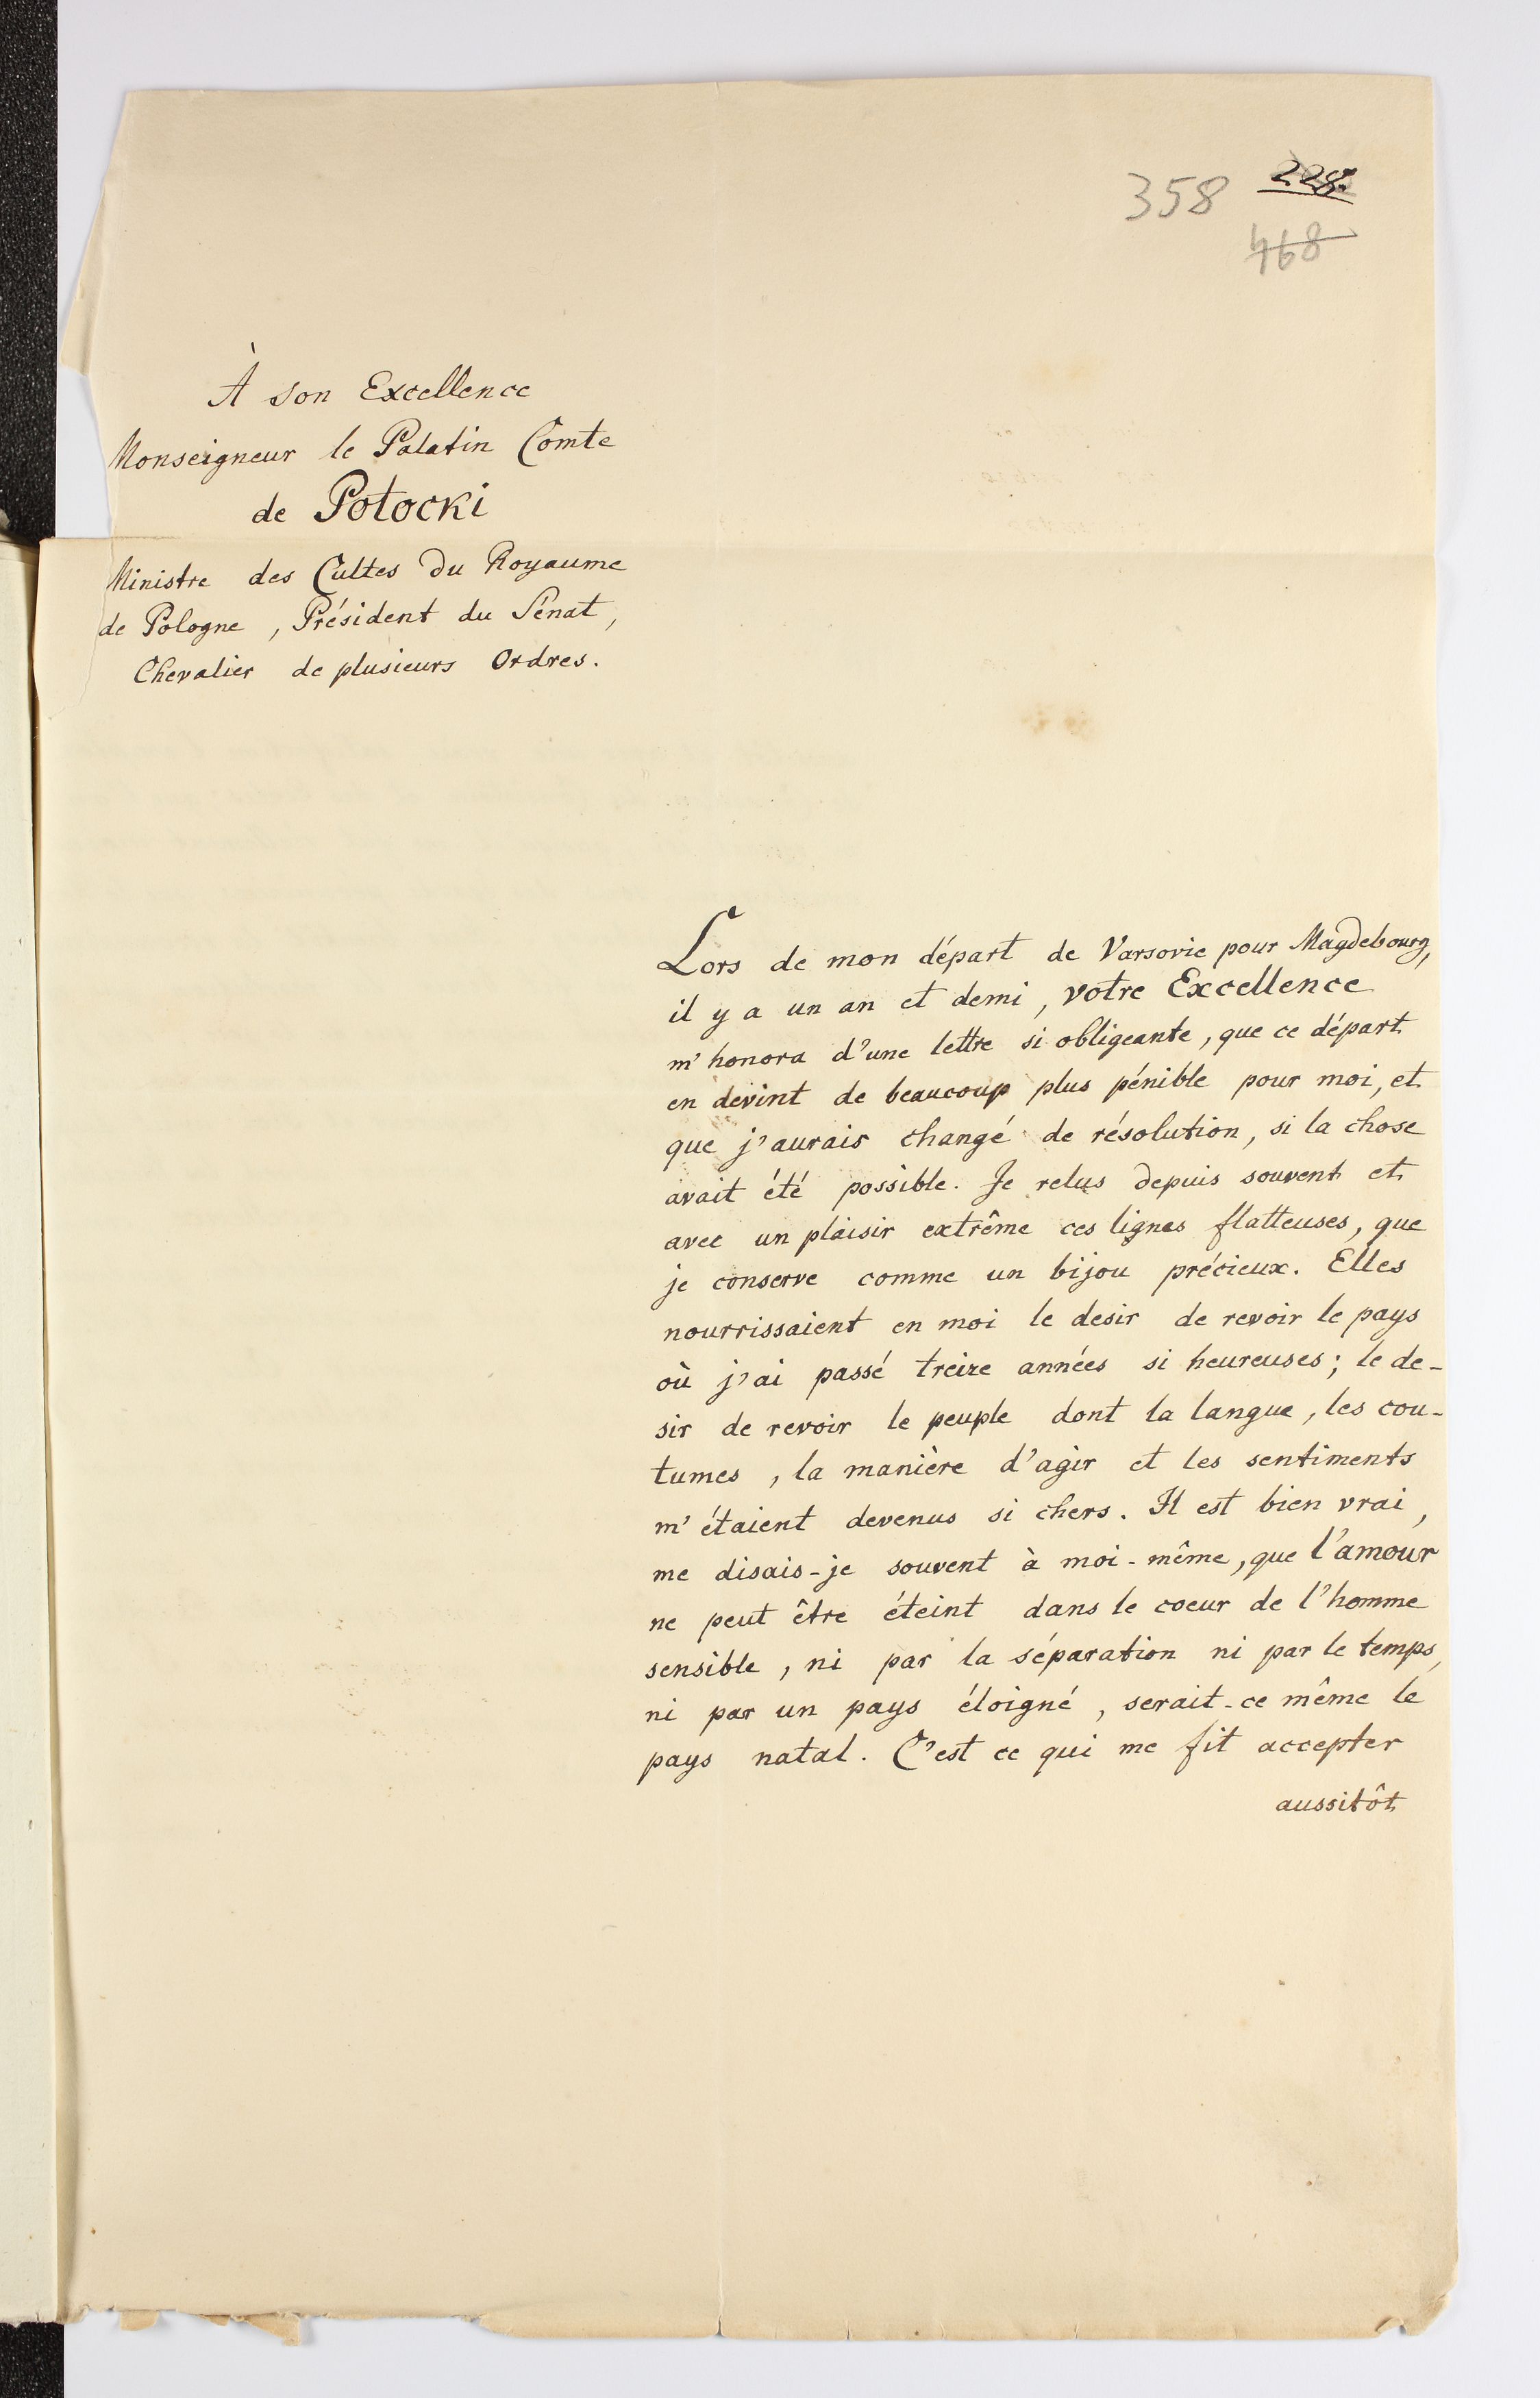 358 228.
468
À son Excellence
Monseigneur le Palatin Comte
de Potocki
Ministre des Cultes du Royaume
de Pologne, Président du Sénat,
Chevalier de plusieurs Ordres.
Lors de mon départ de Varsovie pour Magdebourg,
il y a un an et demi, votre Excellence
m'honora d'une lettre si obligeante, que ce départ
en devint de beaucoup plus pénible pour moi, et
que j'aurais changé de résolution, si la chose
avait été possible. Je relus depuis souvent et
avec un plaisir extrême ces lignes flatteuses, que
je conserve comme un bijou précieux. Elles
nourrissaient en moi le desir de revoir le pays
où j'ai passé treize années si heureuses; le de-
sir de revoir le peuple dont la langue, les cou-
tumes, la manière d'agir et les sentiments
m'étaient devenus si chers. Il est bien vrai,
me disais-je souvent à moi-même, que l'amour
ne peut être éteint dans le coeur de l'homme
sensible, ni par la séparation ni par le temps,
ni par un pays éloigné, serait-ce même le
pays natal. C'est ce qui me fit accepter
aussitôt